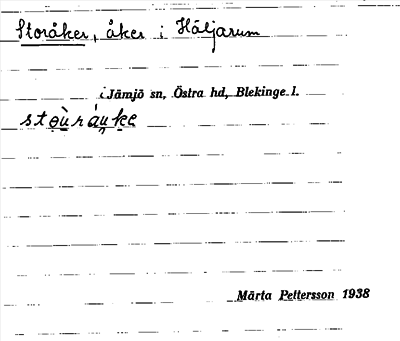 Storåker, åker i Häljarum
i Jämjö sn, Östra hd, Blekinge l.
Märta Pettersson 1938